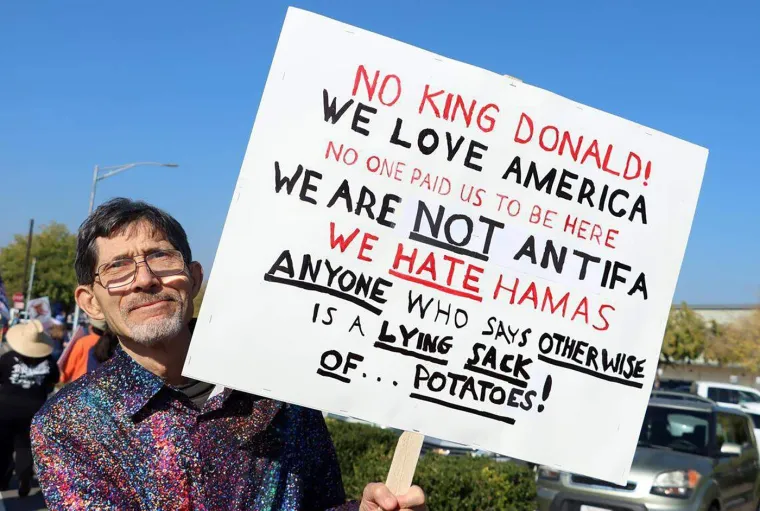 NO KING DONALD!
WE LOVE AMERICA
NO ONE PAID US TO BE HERE
WE ARE NOT ANTIFA
WE HATE HAMAS
ANYONE WHO SAYS OTHERWISE
IS A LYING SACK
OF... POTATOES!